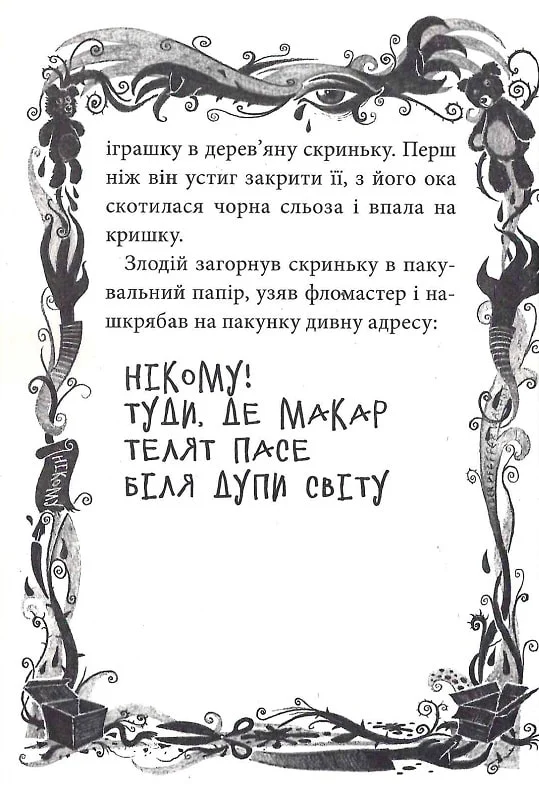 іграшку в дерев’яну скриньку. Перш
ніж він устиг закрити її, з його ока
скотилася чорна сльоза і впала на
кришку.
Злодій загорнув скриньку в паку-
вальний папір, узяв фломастер і на-
шкрябав на пакунку дивну адресу:
НІКОМУ!
ТУДИ, ДЕ МАКАР
ТЕЛЯТ ПАСЕ
БІЛЯ ДУПИ СВІТУ
НІКОМУ